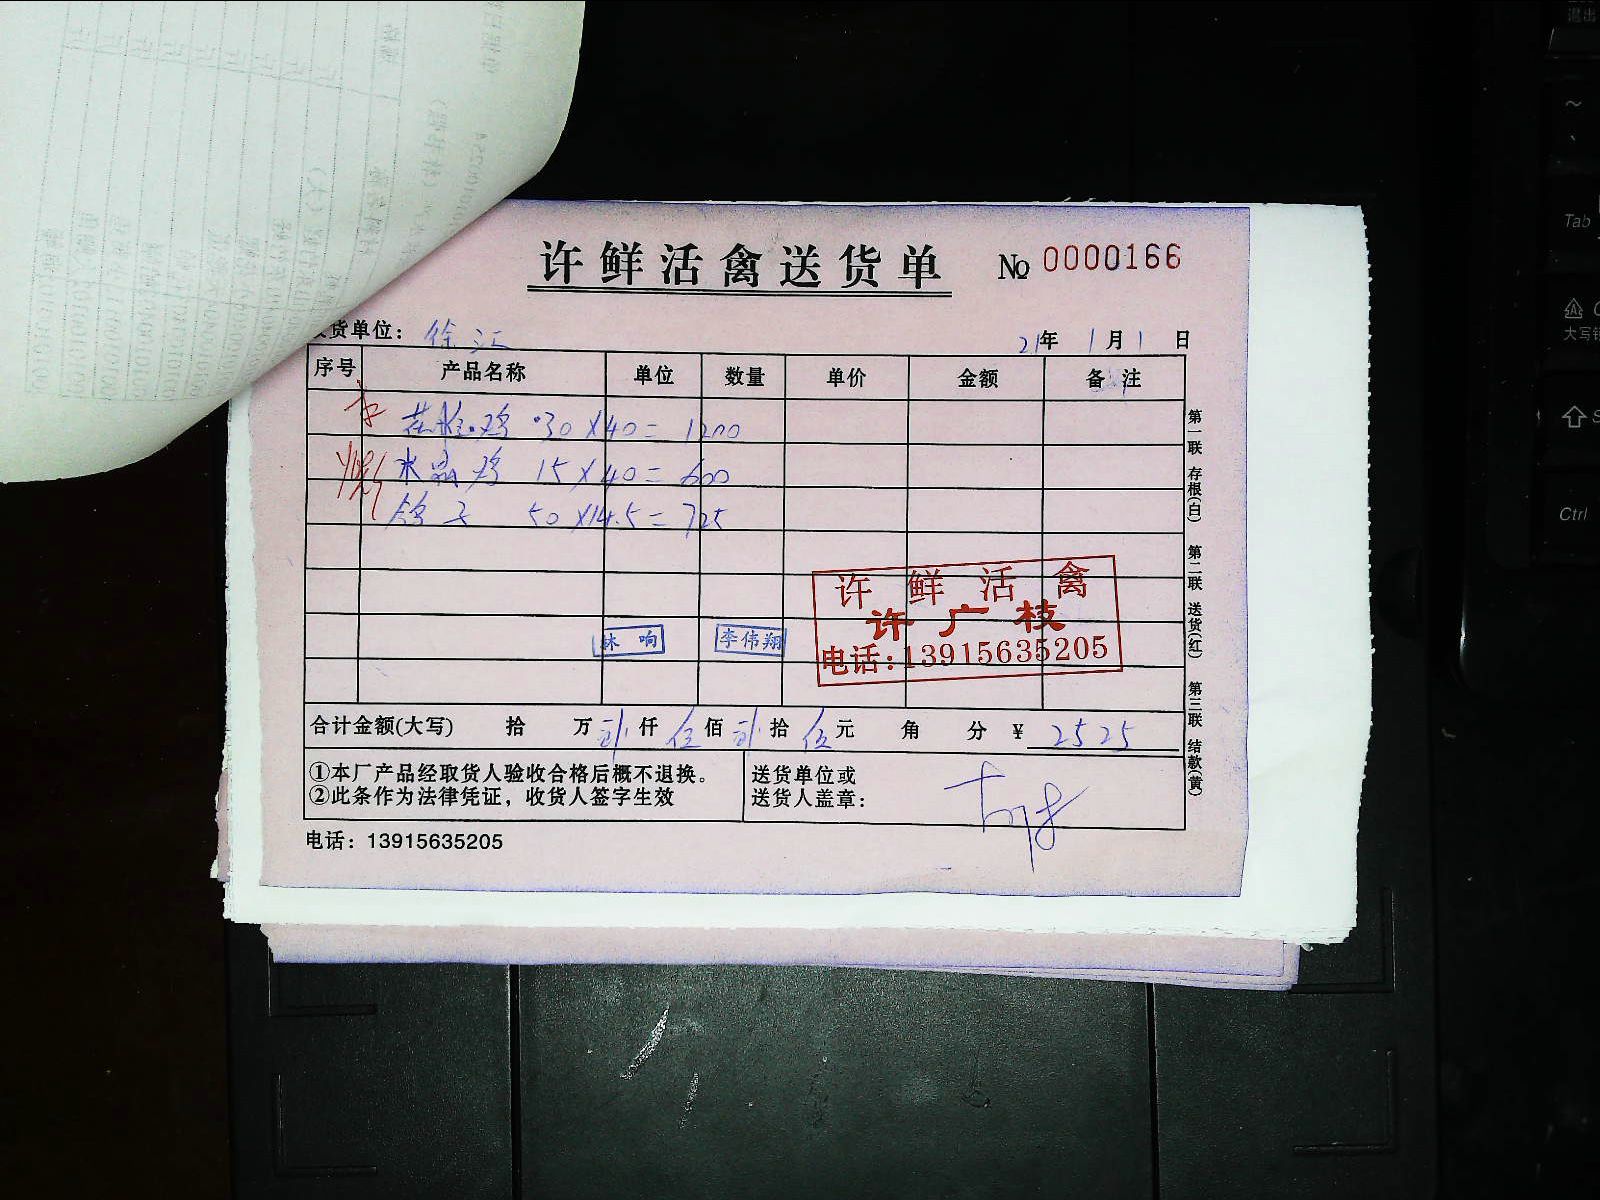 许鲜活禽送货单 № 0000166
货单位： 徐汇 21年 1月1日
序号 产品名称 单位 数量 单价 金额 备注
花雕鸡 30×40= 1200
水晶鸡 15×40= 600
鸽子 50×14.5= 725
许鲜活禽
许广枝
电话:13915635205
林响 李伟翔
合计金额(大写) 拾 万 贰仟 伍佰 贰拾 伍元 角 分 ¥ 2525
①本厂产品经取货人验收合格后概不退换。
②此条作为法律凭证，收货人签字生效
送货单位或
送货人盖章：
电话：13915635205
第一联 存根(白) 第二联 送货(红) 第三联 结款(黄)
Tab
大写锁
Ctrl
退出